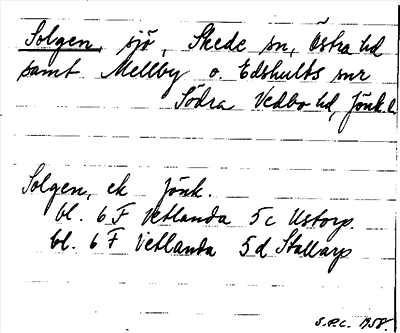 Solgen, sjö, Skede sn, Östra hd
samt Mellby o. Edshults snr
Södra Vedbo hd, Jönk.l.
Solgen, ek Jönk.
bl. 6 F Vetlanda 5c Ustorp.
bl. 6 F Vetlanda 5d Stallarp
S.P.C. 1958.